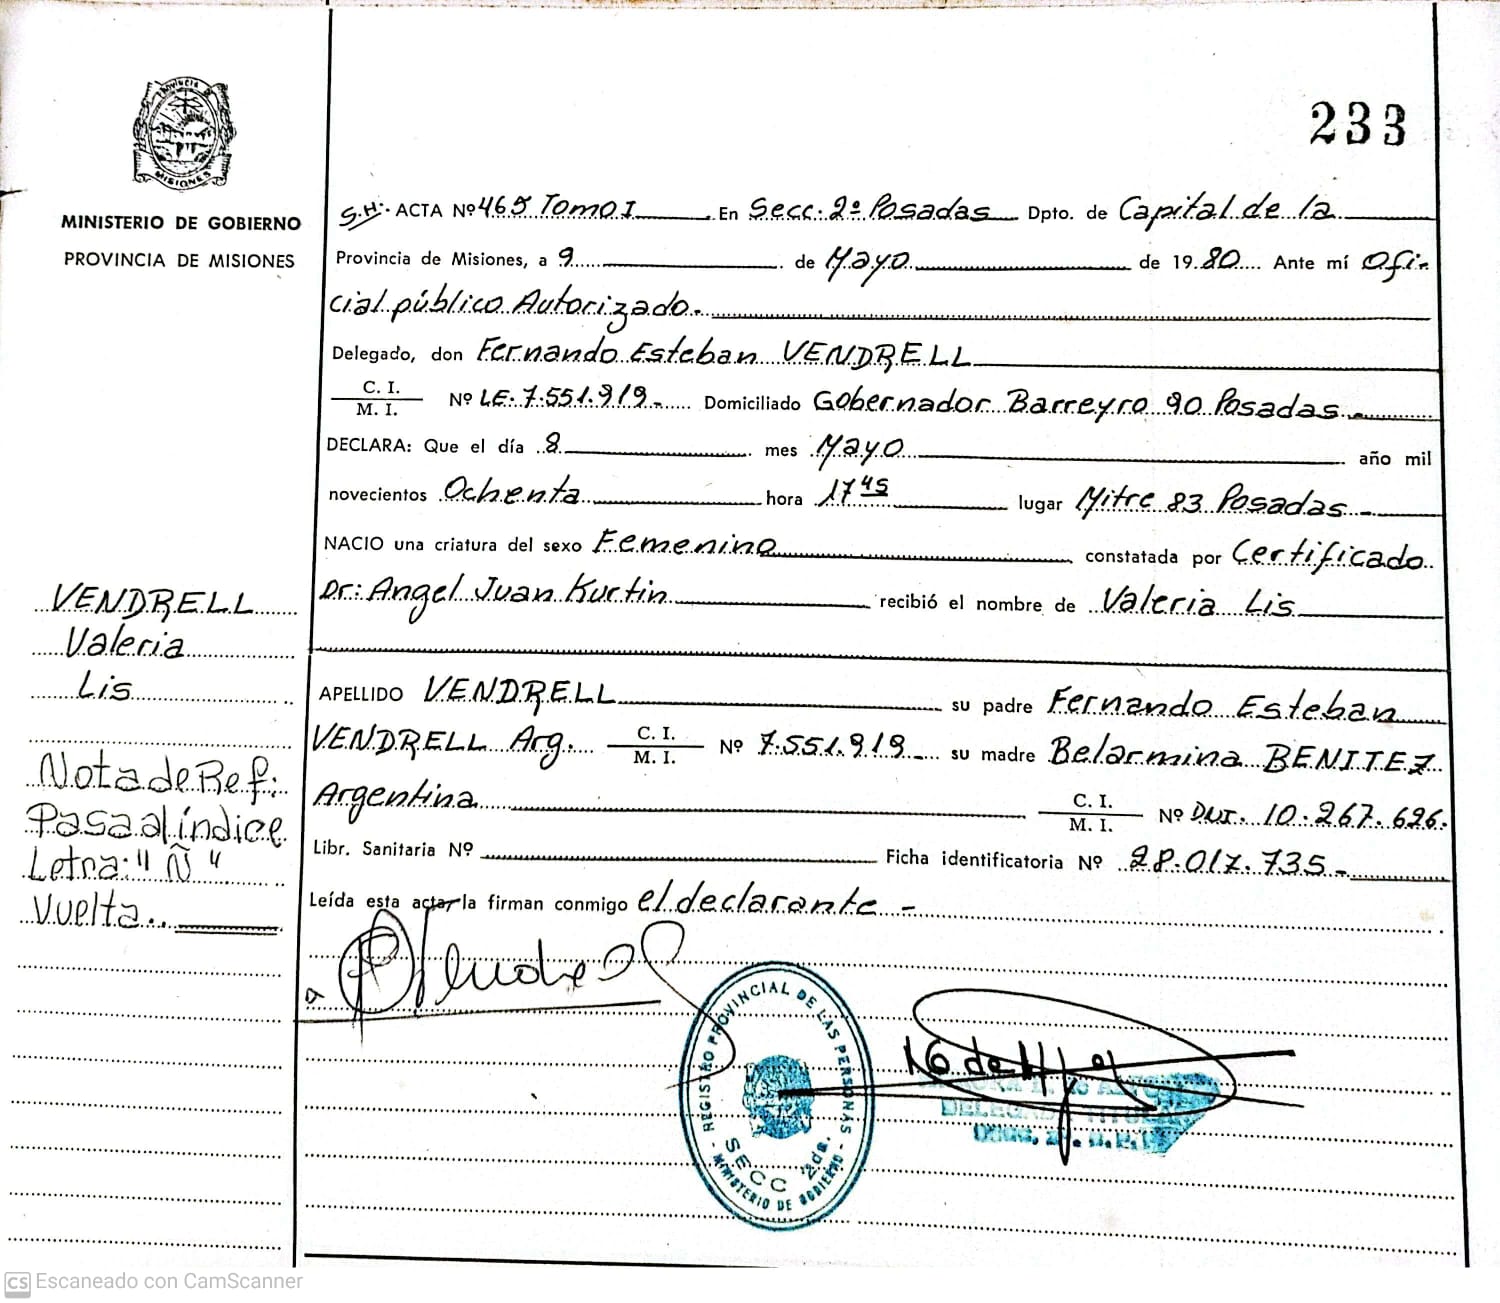 233
Provincia de
MISIONES
MINISTERIO DE GOBIERNO
PROVINCIA DE MISIONES
S.H. ACTA Nº 465 Tomo I En Secc. 2º Posadas Dpto. de Capital de la
Provincia de Misiones, a 9 de Mayo de 1980 Ante mí Ofi-
cial público Autorizado.-
Delegado, don Fernando Esteban VENDRELL
C. I.
M. I. Nº LE. 7.551.919.- Domiciliado Gobernador Barreyro 90 Posadas.-
DECLARA: Que el día 8 mes Mayo año mil
novecientos Ochenta hora 17 45 lugar Mitre 83 Posadas.-
NACIO una criatura del sexo Femenino constatada por Certificado
Dr: Angel Juan Kurtin recibió el nombre de Valeria Lis
APELLIDO VENDRELL su padre Fernando Esteban
VENDRELL Arg. C. I.
M. I. Nº 7.551.919 su madre Belarmina BENITEZ
Argentina C. I.
M. I. Nº DNI. 10.267.626.
Libr. Sanitaria Nº Ficha identificatoria Nº 28.017.735.-
Leída esta acta la firman conmigo el declarante -
VENDRELL
Valeria
Lis
Nota de Ref:
Pasa al índice
Letra: "Ñ"
Vuelta..
REGISTRO PROVINCIAL DE LAS PERSONAS
SECC 2da.
- MINISTERIO DE GOBIERNO -
CS Escaneado con CamScanner